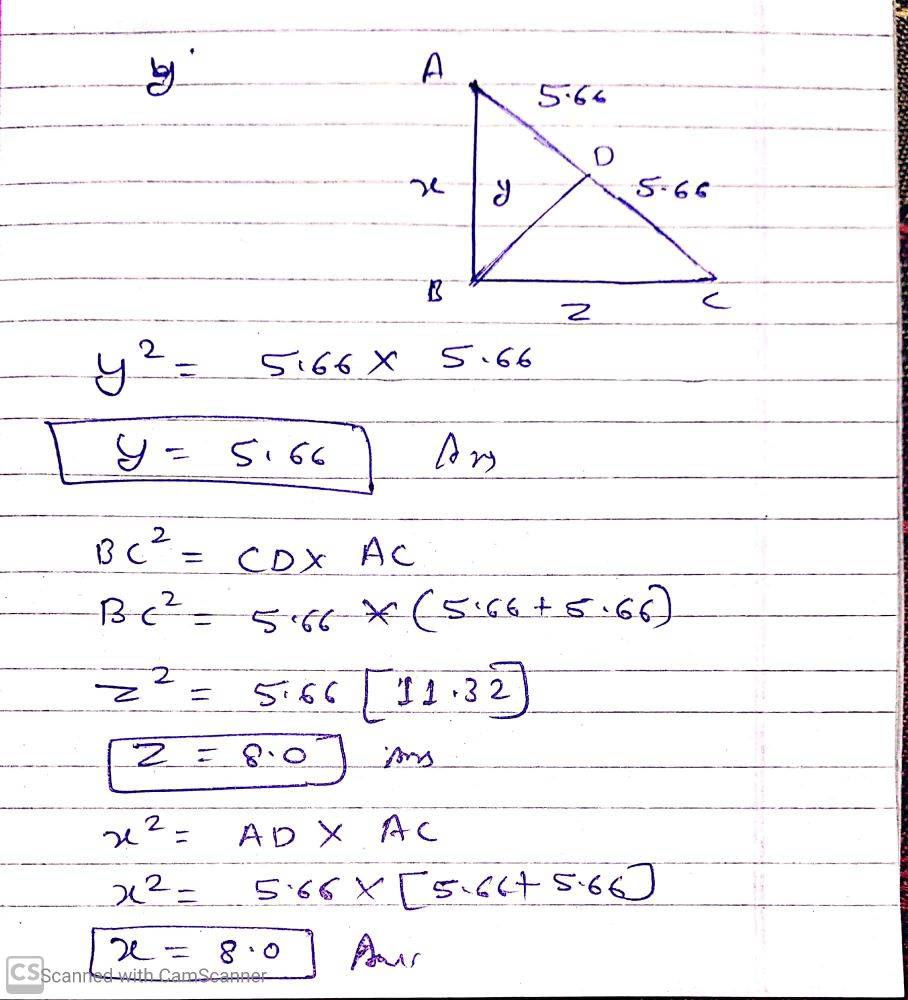 y
A
5.66
D
x y 5.66
B
z C
y² = 5.66 × 5.66
y = 5.66 Ans
BC² = CD × AC
BC² = 5.66 × (5.66 + 5.66)
z² = 5.66 [11.32]
z = 8.0 Ans
x² = AD × AC
x² = 5.66 × [5.66 + 5.66]
x = 8.0 Ans
CS Scanned with CamScanner